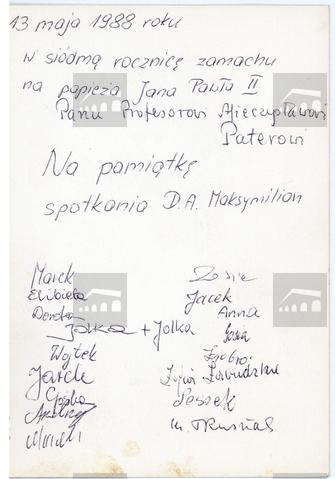 13 maja 1988 roku
w siódmą rocznicę zamachu
na papieża Jana Pawła II
Panu Profesorowi Mieczysławowi
Paterowi
Na pamiątkę
spotkania D.A. Maksymilian
Marek
Elżbieta
Dorota
Jolka + Jolka
Wojtek
Jacek
Gośka
Andrzej
Zosia
Jacek
Anna
Gosia
Leszek